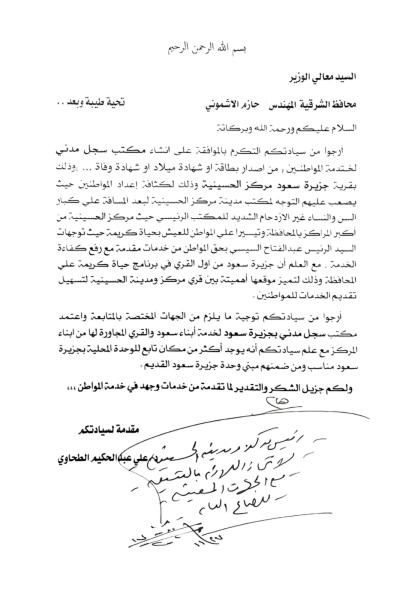 بسم الله الرحمن الرحيم
السيد معالي الوزير
محافظ الشرقية المهندس حازم الاشموني تحية طيبة وبعد ..
السلام عليكم ورحمة الله وبركاتة
ارجوا من سيادتكم التكرم بالموافقة علي انشاء مكتب سجل مدني
لخدمة المواطنين ( من اصدار بطاقة او شهادة ميلاد او شهادة وفاة ... )وذلك
بقرية جزيرة سعود مركز الحسينية وذلك لكثافة إعداد المواطنين حيث
يصعب عليهم التوجه لمكتب مدينة مركز الحسينية لبعد المسافة علي كبار
السن والنساء غير الازدحام الشديد للمكتب الرئيسي حيث مركز الحسينية من
اكبر المراكز بالمحافظة وتيسيرا علي المواطن للعيش بحياة كريمة حيث توجهات
السيد الرئيس عبدالفتاح السيسي بحق المواطن من خدمات مقدمة مع رفع كفاءة
الخدمة . مع العلم أن جزيرة سعود من اول القري في برنامج حياة كريمة علي
المحافظة وذلك لتميز موقعها أهميتة بين قري مركز ومدينة الحسينية لتسهيل
تقديم الخدمات للمواطنين .
ارجوا من سيادتكم توجية ما يلزم من الجهات المختصة بالمتابعة واعتمد
مكتب سجل مدني بجزيرة سعود لخدمة أبناء سعود والقري المجاورة لها من ابناء
المركز مع علم سيادتكم أنه يوجد أكثر من مكان تابع للوحدة المحلية بجزيرة
سعود مناسب ومن ضمنهم مبني وحدة جزيرة سعود القديم .
ولكم جزيل الشكر والتقدير لما تقدمة من خدمات وجهد في خدمة المواطن ,,,
هام
مقدمة لسيادتكم
رئيس مركز ومدينة
علي عبدالحكيم الطحاوي
للصالح العام